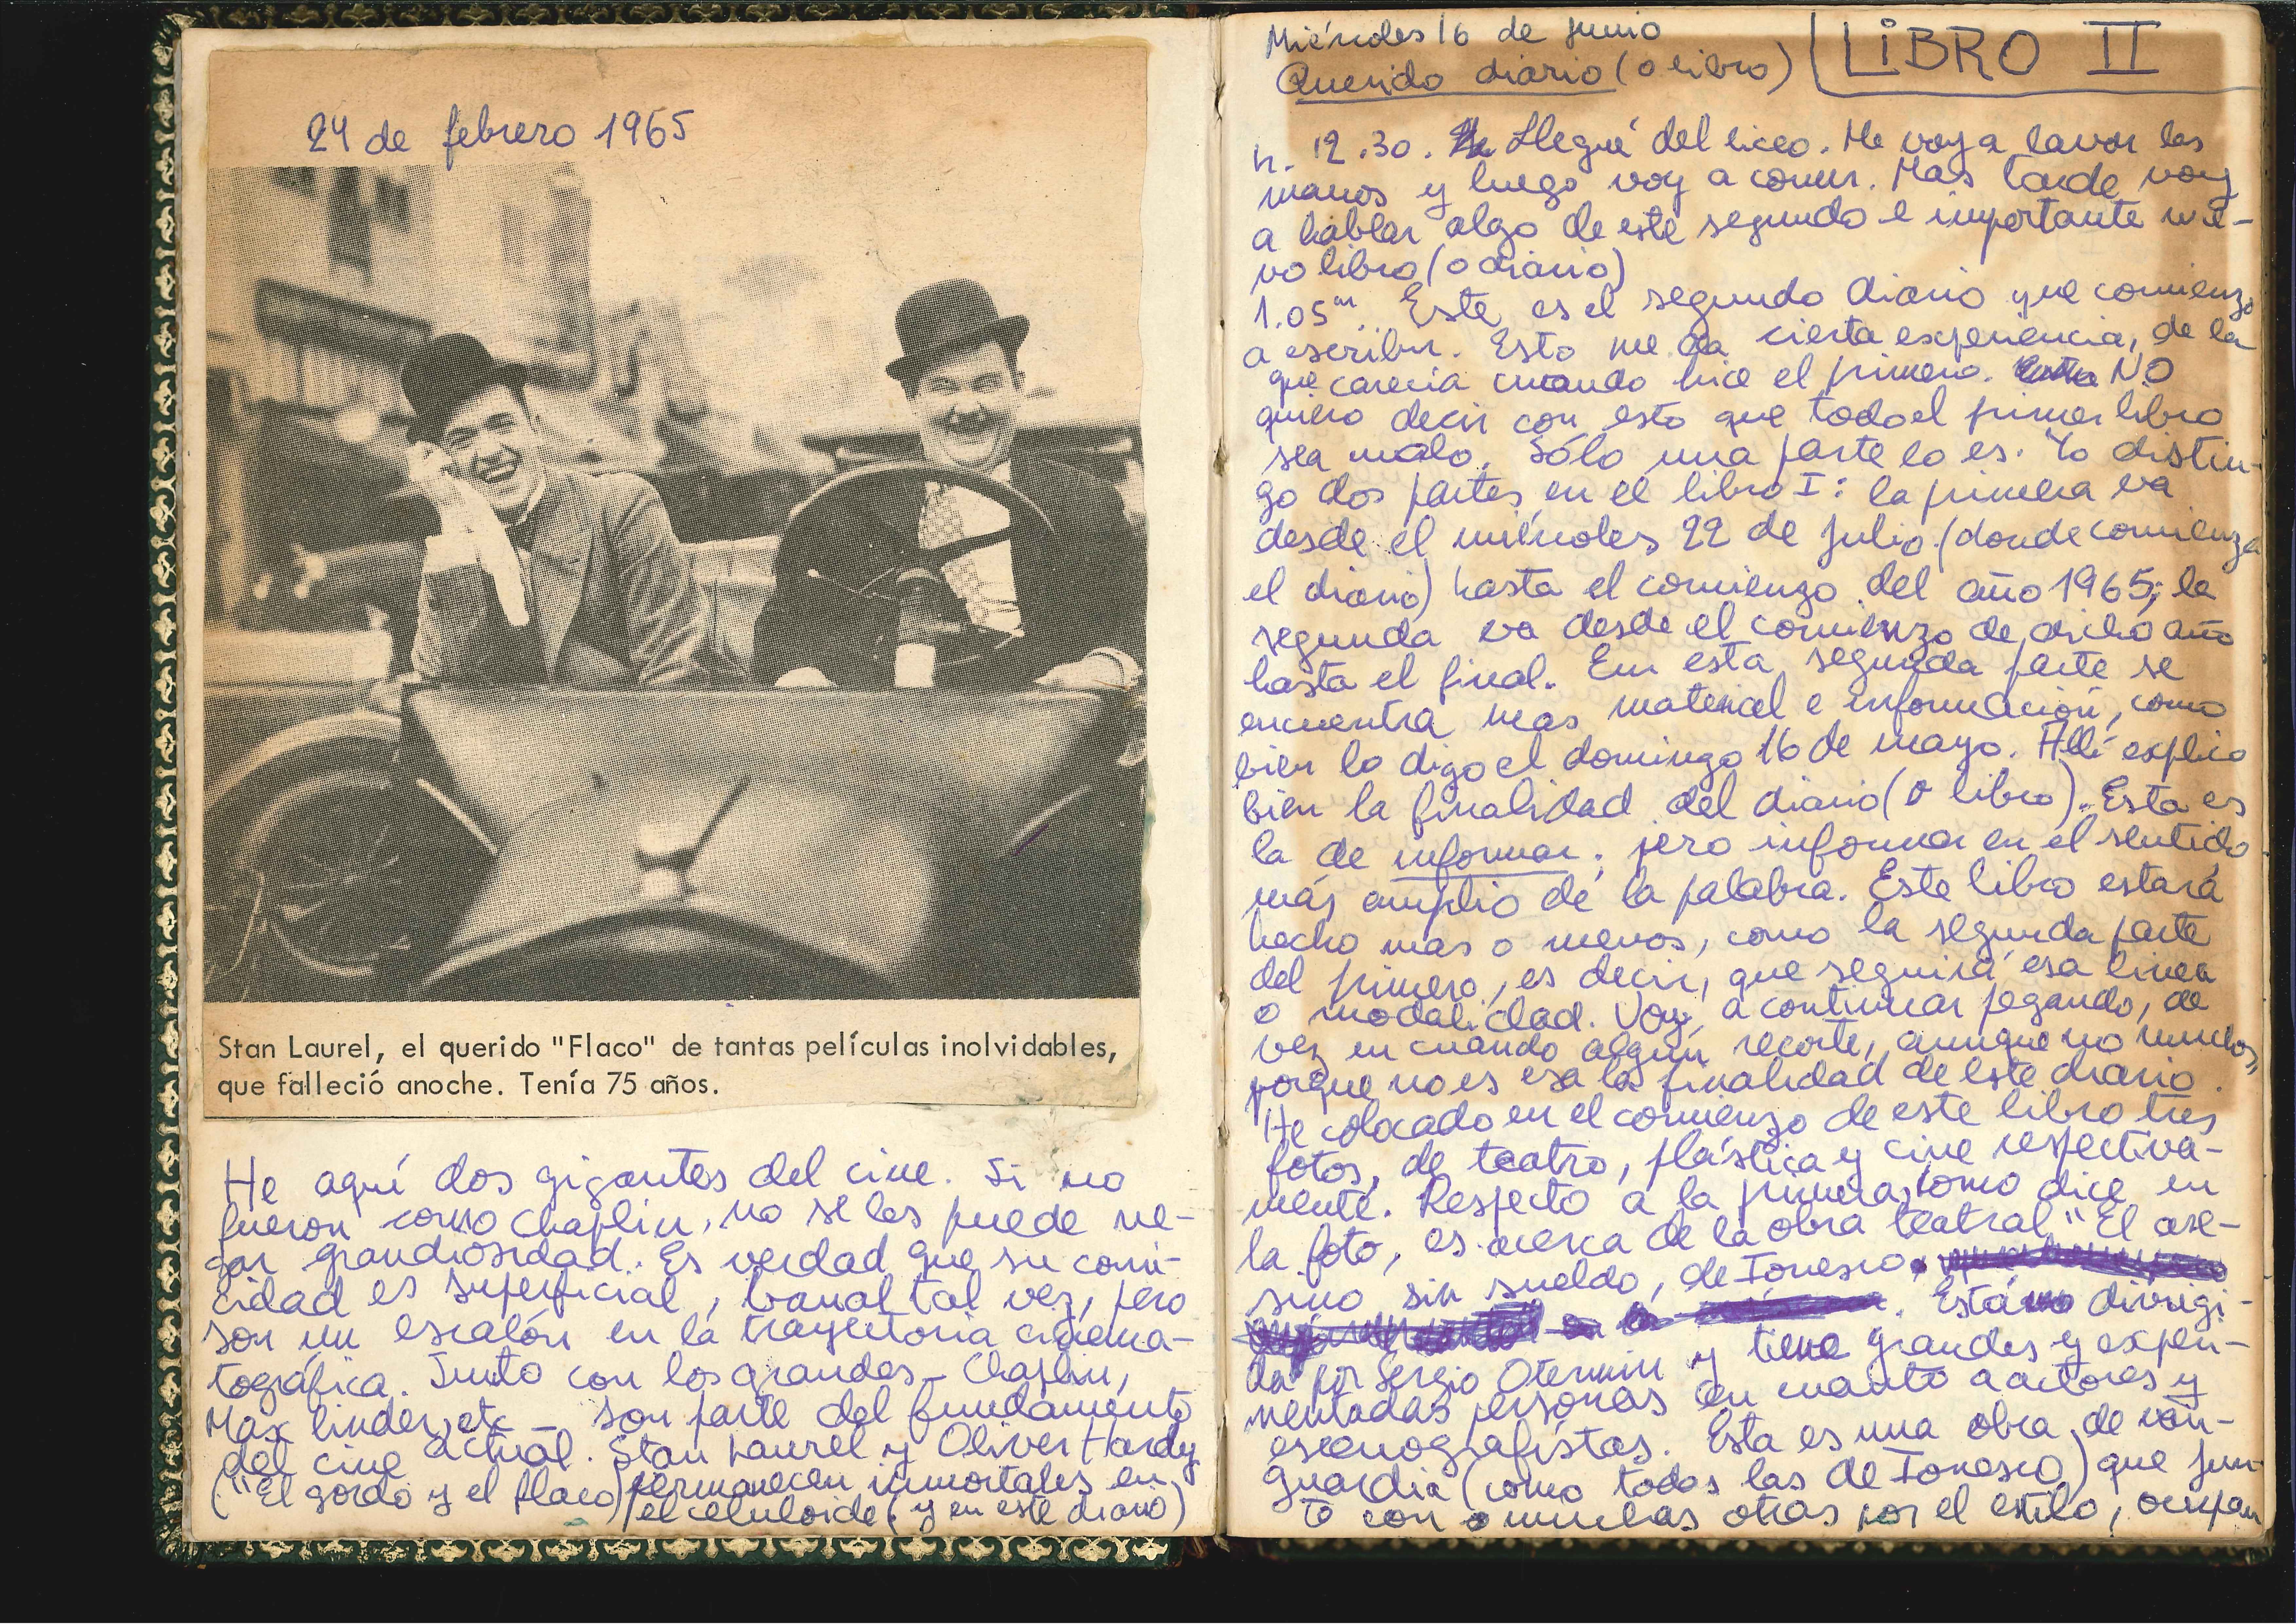 24 de febrero 1965
Stan Laurel, el querido "Flaco" de tantas películas inolvidables,
que falleció anoche. Tenía 75 años.
He aquí dos gigantes del cine. Si no
fueron como Chaplin, no se les puede ne-
gar grandiosidad. Es verdad que su comi-
cidad es superficial, banal tal vez, pero
son un escalón en la trayectoria cinema-
tográfica. Junto con los grandes - Chaplin,
Max Linder, etc - son parte del fundamento
del cine actual. Stan Laurel y Oliver Hardy
("El gordo y el flaco) permanecen inmortales en
el celuloide (y en este diario)
Miércoles 16 de junio
Querido diario (o libro)
LIBRO II
h. 12.30. Llegué del liceo. Me voy a lavar las
manos y luego voy a comer. Mas tarde voy
a hablar algo de este segundo e importante nue-
vo libro (o diario)
1.05m.. Este es el segundo diario que comienzo
a escribir. Esto me da cierta experiencia, de la
que carecia cuando hice el primero. NO
quiero decir con esto que todo el primer libro
sea malo. Sólo una parte lo es. Yo distin-
go dos partes en el libro I: la primera va
desde el miércoles 22 de julio (donde comienza
el diario) hasta el comienzo del año 1965; la
segunda va desde el comienzo de dicho año
hasta el final. En esta segunda parte se
encuentra mas material e información, como
bien lo digo el domingo 16 de mayo. Allí explico
bien la finalidad del diario (o libro). Esta es
la de informar; pero informar en el sentido
más amplio de la palabra. Este libro estará
hecho mas o menos, como la segunda parte
del primero, es decir, que seguirá esa linea
o modalidad. Voy a continuar pegando, de
vez en cuando algún recorte, aunque no muchos,
porque no es esa la finalidad de este diario.
He colocado en el comienzo de este libro tres
fotos, de teatro, plástica y cine respectiva-
mente. Respecto a la primera, como dice en
la foto, es acerca de la obra teatral "El ase-
sino sin sueldo, de Ionesco.
Está dirigi-
da por Sergio Otermin y tiene grandes y experi-
mentadas personas en cuanto a actores y
escenografistas. Esta es una obra de van-
guardia (como todas las de Ionesco) que jun-
to con muchas otras por el estilo, ocupan